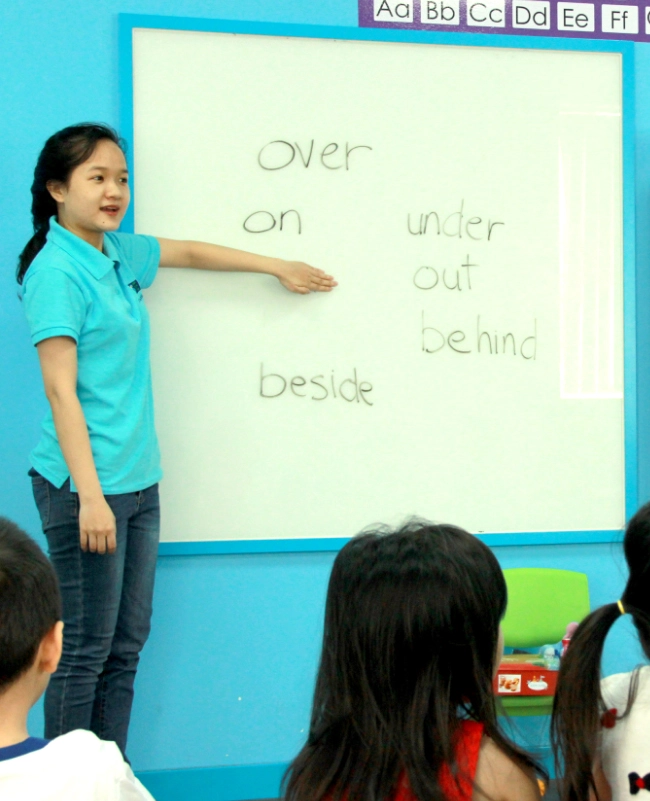 Aa Bb Cc Dd Ee Ff
over
on
under
out
behind
beside